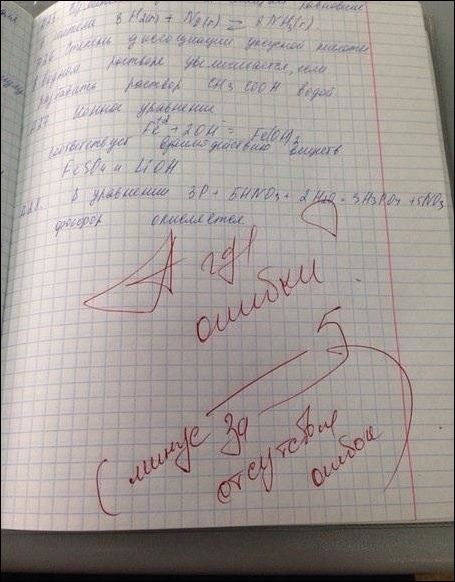 равновесие
3 H2(г) + N2(г) = 2 NH3(г)
Д26 Степень диссоциации уксусной кислоты
в водном растворе увеличивается, если
разбавить раствор CH3COOH водой
Д27 Ионное уравнение
Fe+2 + 2OH- = Fe(OH)2
соответствует взаимодействию веществ
FeSO4 и LiOH
Д28. В уравнении 3P + 5HNO3 + 2H2O = 3H3PO4 + 5NO3
фосфор окисляется
А где
ошибки
5
(минус за
отсутствие
ошибок)